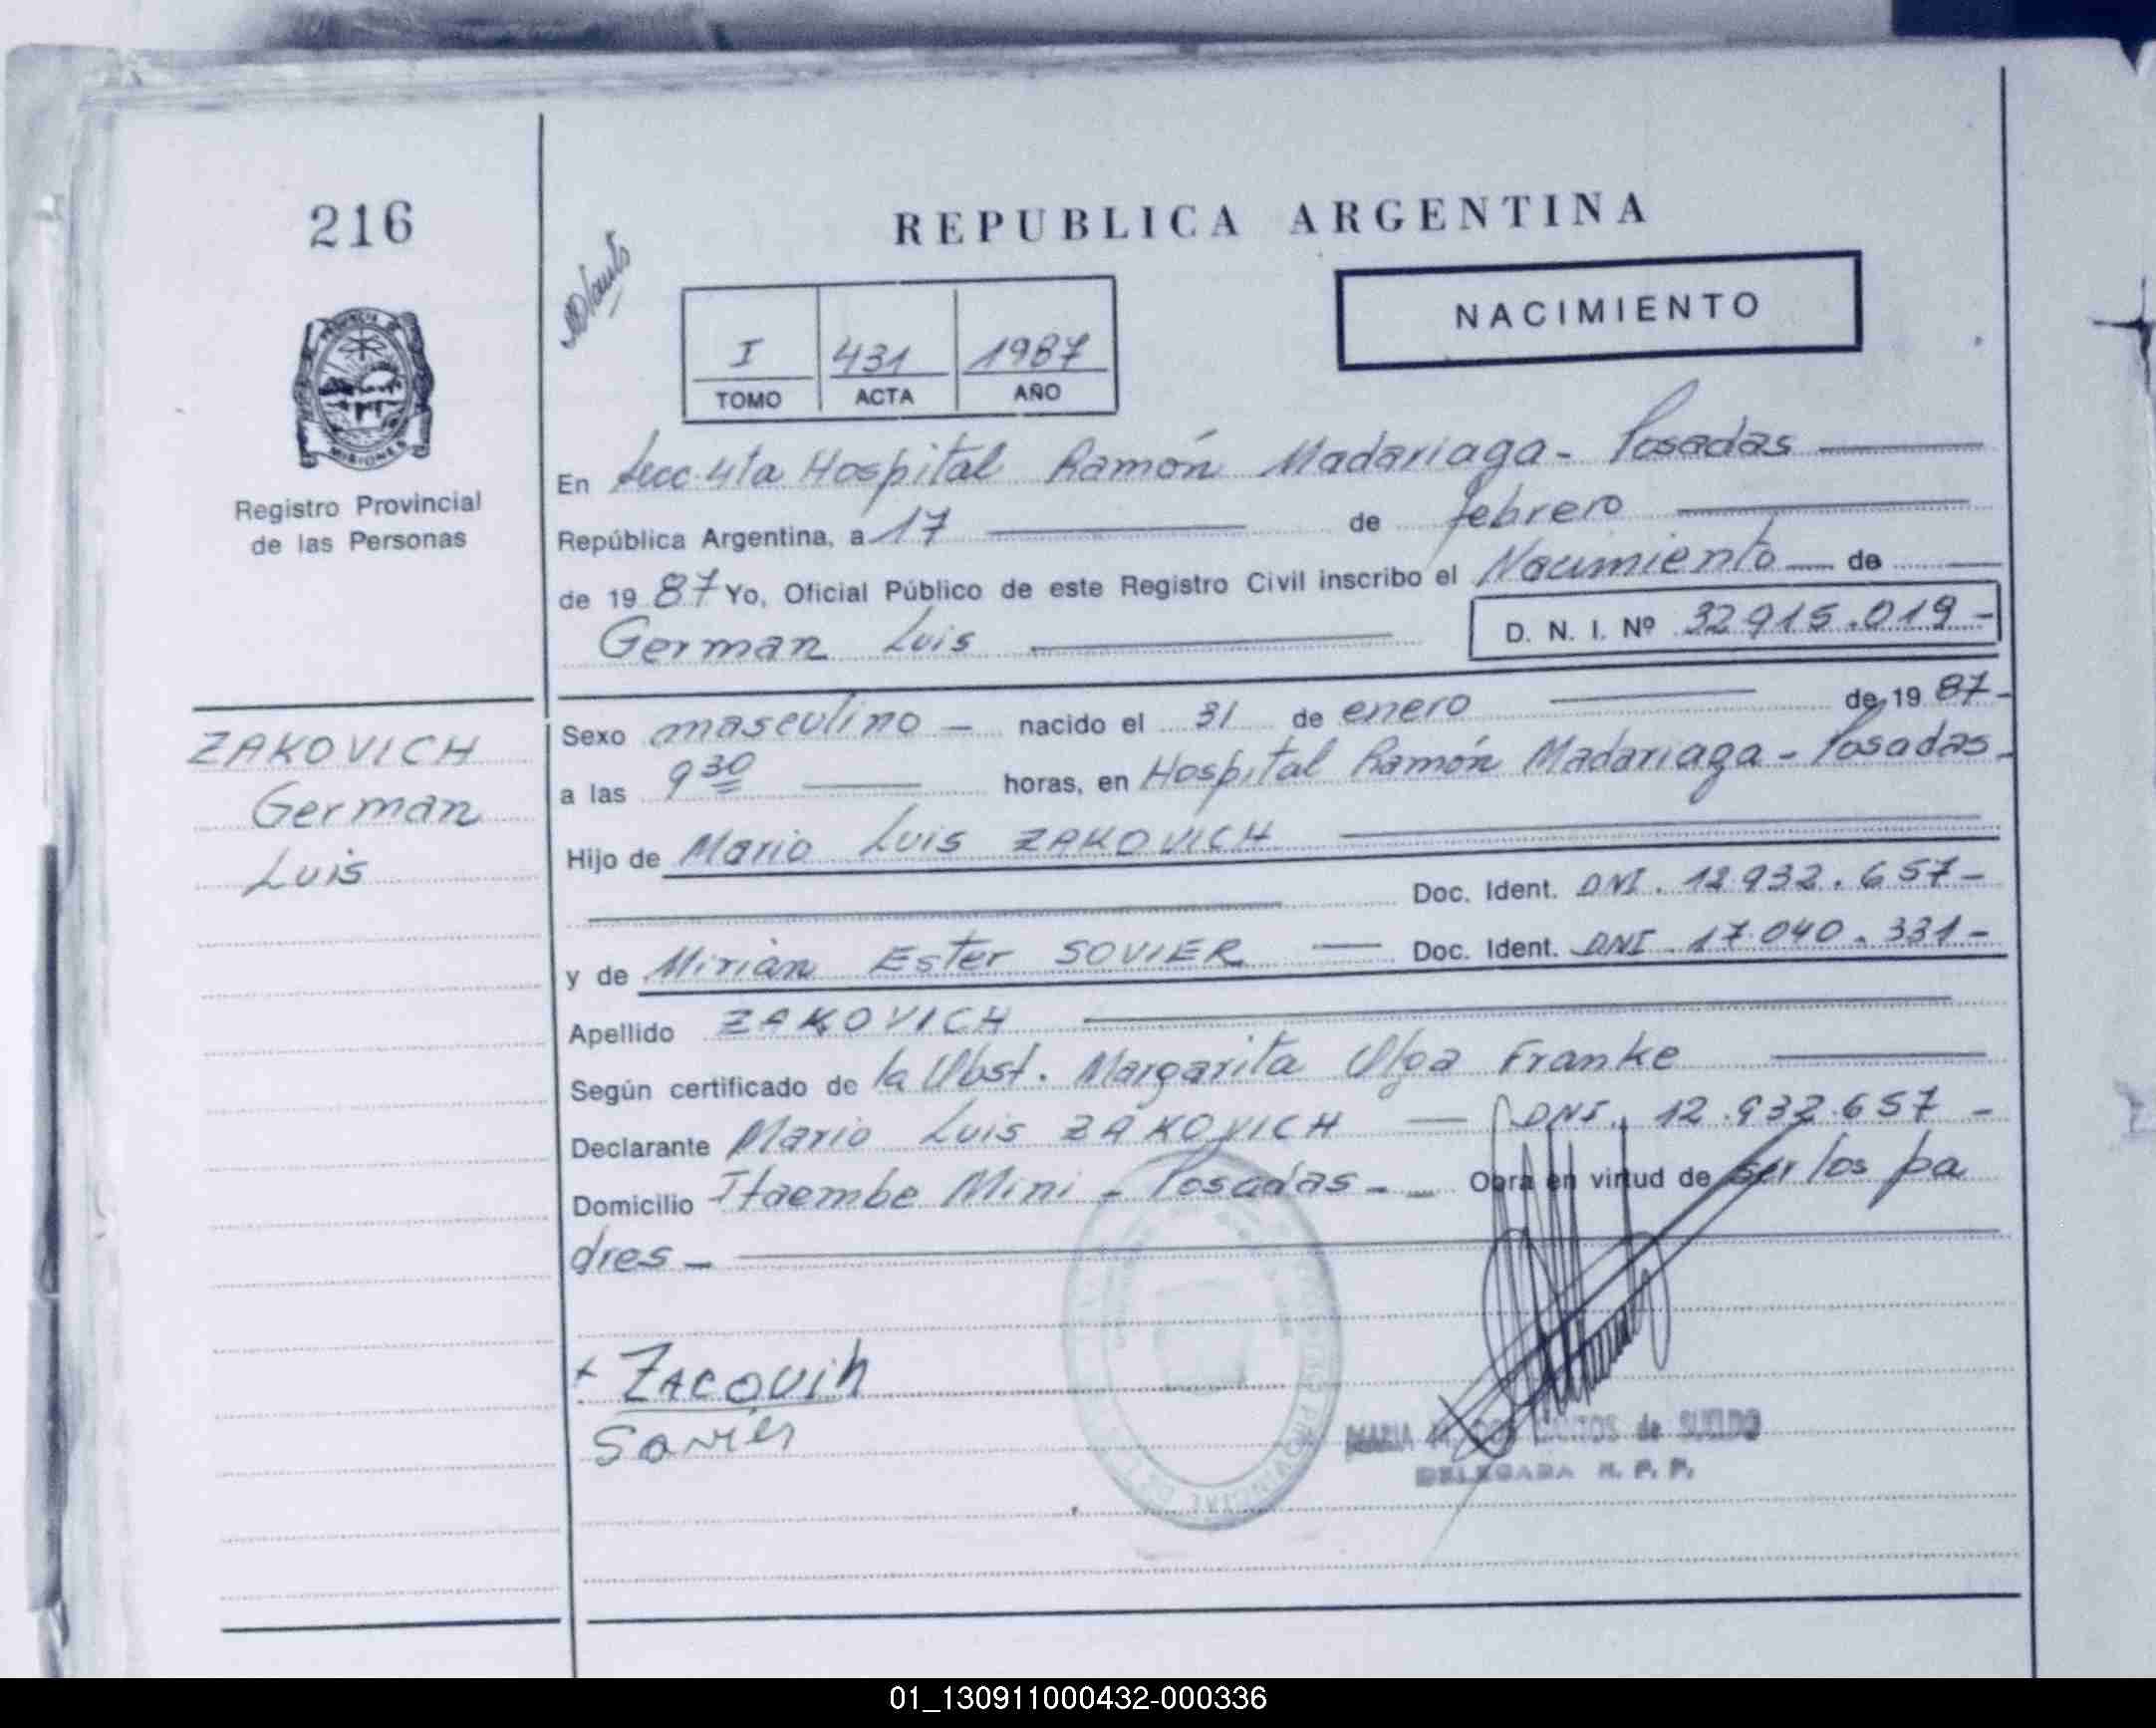 216
REPUBLICA ARGENTINA
NACIMIENTO
I 431 1987
TOMO ACTA AÑO
PROVINCIA DE
MISIONES
Registro Provincial
de las Personas
En Secc. 4ta Hospital Ramón Madariaga - Posadas
República Argentina, a 17 de febrero
de 1987 Yo, Oficial Público de este Registro Civil inscribo el Nacimiento de
German Luis D. N. I. Nº 32915.019 -
ZAKOVICH
German
Luis
Sexo masculino - nacido el 31 de enero de 1987 -
a las 9 30 horas, en Hospital Ramón Madariaga - Posadas -
Hijo de Mario Luis ZAKOVICH
Doc. Ident. DNI. 12.932.657 -
y de Mirian Ester SOVIER Doc. Ident. DNI 17.040.331 -
Apellido ZAKOVICH
Según certificado de la Obst. Margarita Olga Franke
Declarante Mario Luis ZAKOVICH - DNI. 12.932.657 -
Domicilio Itaembe Mini - Posadas - Obra en virtud de ser los pa
dres -
x ZACOVIh
Sovier
MARIA M. DOS SANTOS de SUELDO
DELEGADA R. P. P.
01_130911000432-000336